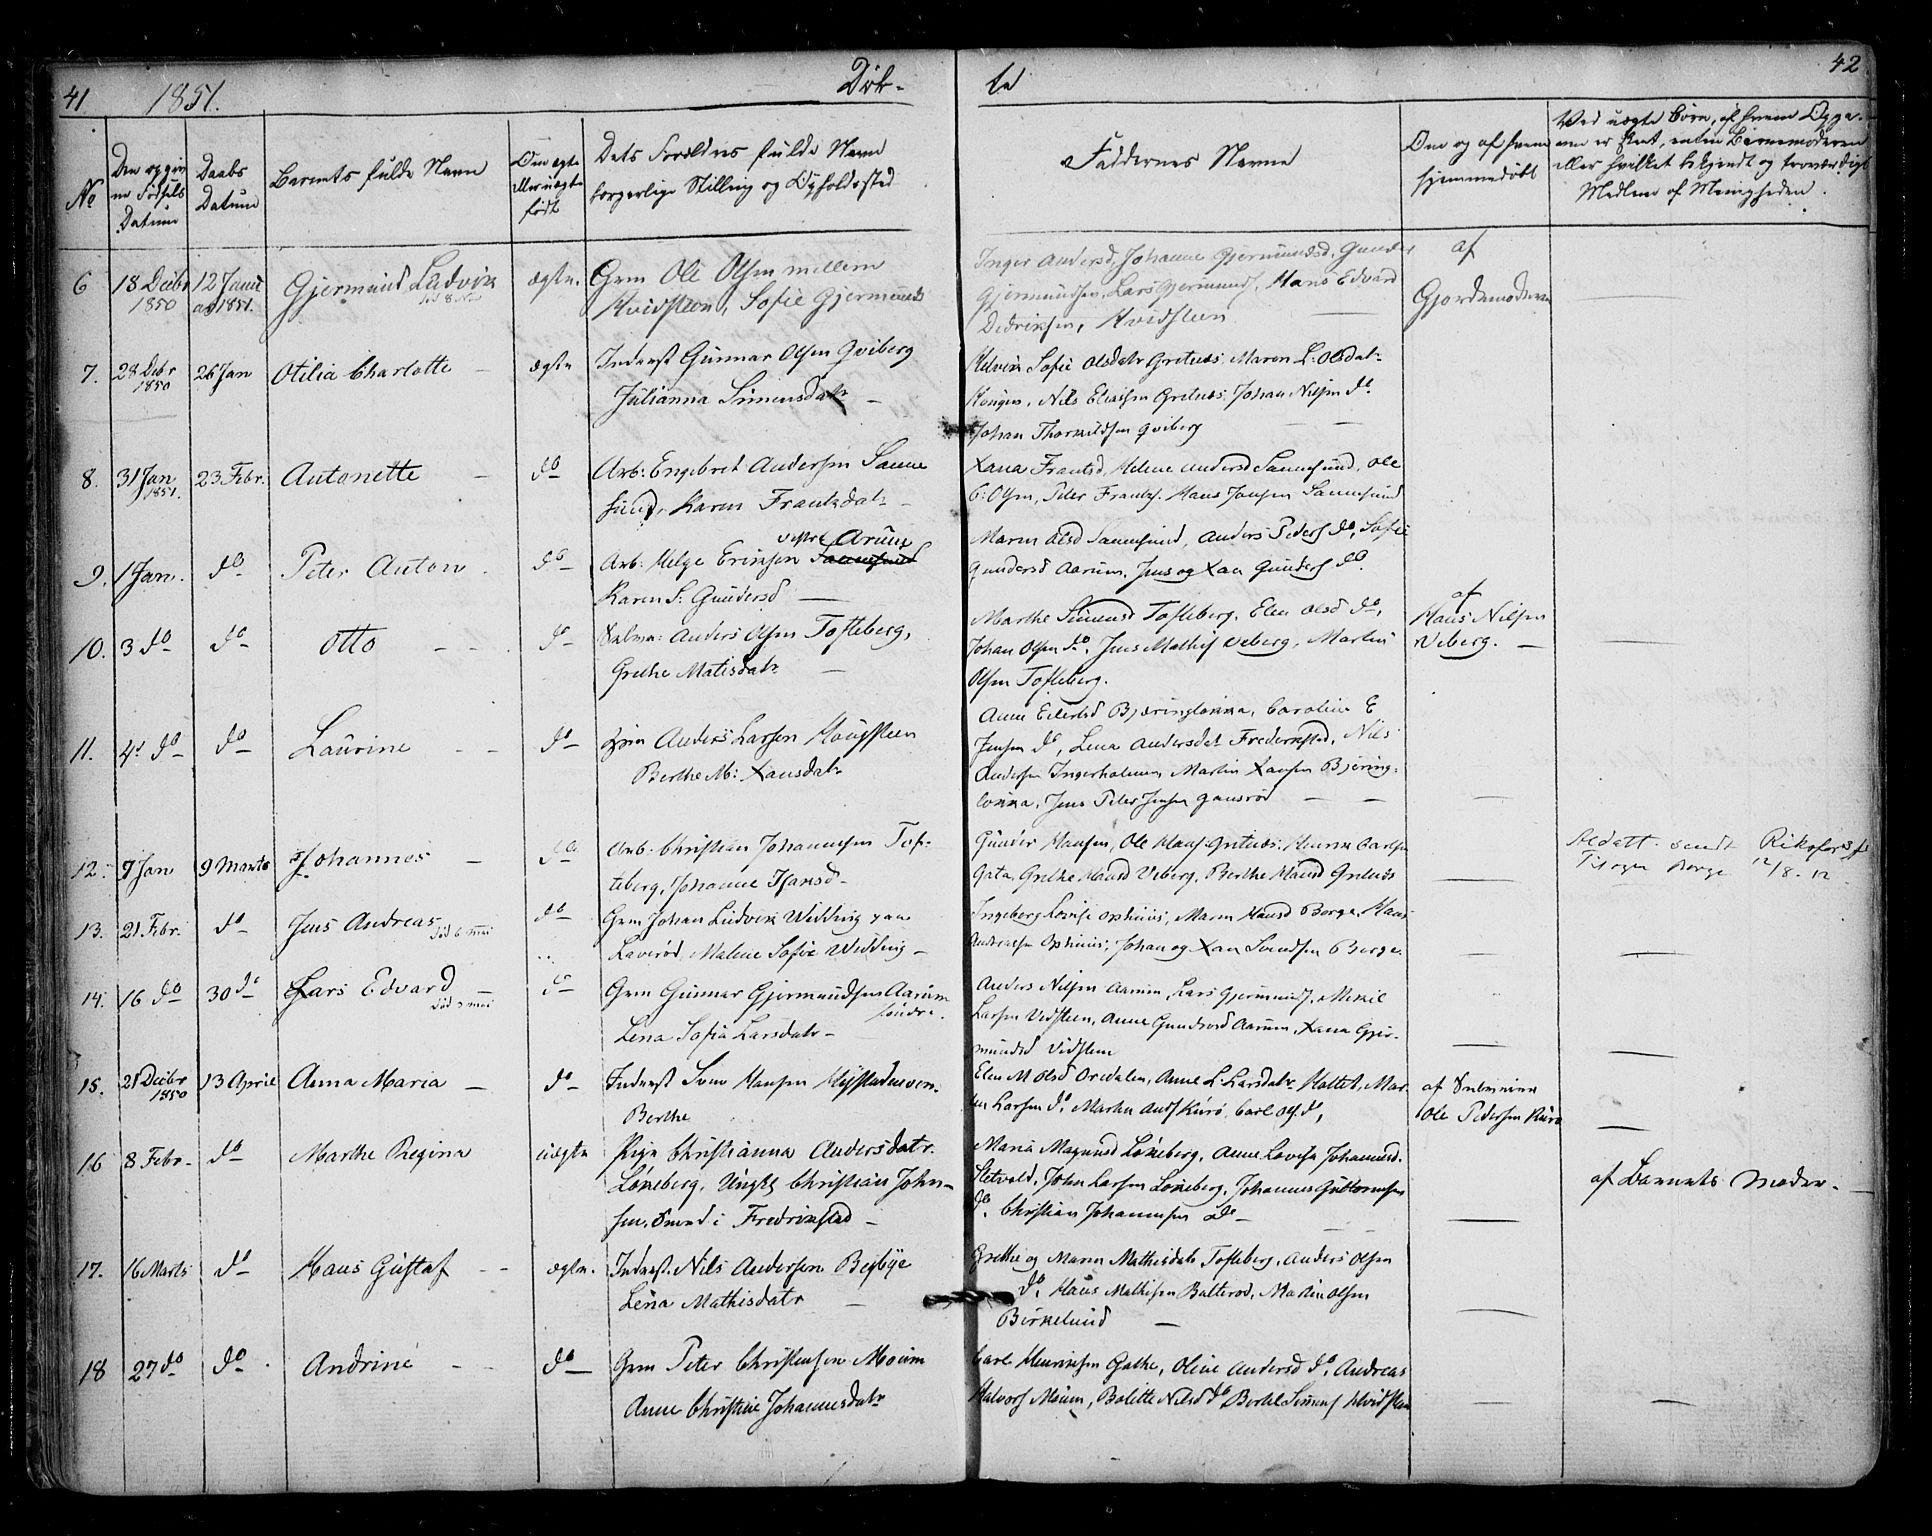 41. 1851. Døb-
te 42
No
Den opgiv
ne Fødsels
Datum
Daabs
Datum
Barnets fulde Navn
Om ægte
eller uægte
født
Dets Forældres fulde Navn
borgerlige Stilling og Opholdssted
Faddernes Navne
Om og af hvem
hjemmedøbt
Ved uægte Børn, af hvem Opga-
ven er skeet, enten Barnemoderen
eller hvilket bekjendt og troværdigt
Medlem af Menigheden.
6 18 Decbr 12 Janu Gjermund Ludvik ægte. Grm Ole Olsen mellem
1850 ar 1851.
Hvidsteen, Sofie Gjermunds
Inger Andersd, Johanne Gjermundsd, Gunder
Gjermundsen, Lars Gjermunds, Hans Edvard
Dedriksen, Hvidsteen
af
Gjordemoderen
7. 28 Decbr 26 Jan Otilia Charlotte - ægte Inderst Gunnar Olsen Qviberg
1850
Julianna Simensdatr -
Helvik Sofie Olsdatr Gretnes, Maren L: Olsdatr
Kongen, Nils Eliassen Gretnes, Johan Nilsen do
Johan Thorkildsen Qviberg
8. 31 Jan 23 Febr. Antonette - do Arb: Engebret Andersen Sanne
1851.
sund, Karen Frantsdatr -
Xana Frantsd, Helene Andersd Sannesund, Ole
C: Olsen, Peter Frantz, Hans Jansen Sannesund
9. 1 Jan. do Peter Anton. do Arb: Helge Eriksen Sannesund
vestre Arum
Karen S: Gundersd
Maren Olsd Sannesund, Anders Peders do, Sofie
Gundersd Aarum, Jens og Xan Gunders do
10. 3 do do Otto - - do Selve: Anders Olsen Tofteberg,
Grethe Matisdatr -
Marthe Simensd Tofteberg, Elen Olsd do,
Johan Olsen do, Jens Mathis Veberg, Martin
Olsen Tofteberg.
af
Hans Nilsen
Veberg. -
11. 4 do do Laurine - - do Grm Anders Larsen Haugsteen
Berthe M: Xansdatr
Anne Eilertsd Bjæringløkka, Caroline E
Jensen do, Lena Andersdatr Fredrikstad, Nils
Andersen Ingerholmen, Martin Xansen Bjæring-
løkka, Jens Peter Jensen Gansrød - -
12. 9 Jan 9 Marts Johannes - do Arb: Christian Johannesen Tof-
teberg, Johanne Hansd -
Gunder Hansen, Ole Hans. Gretnes, Henrik Carlsen
Gata, Grethe Hansd Veberg, Berthe Hansd Gretnes
Aldatt. sendt Riksforsf
Borge 12/8.12
13. 21 Febr. do Jens Andreas do Grm Johan Ludvik Widding paa
død 6 Mai
Laverød, Malene Sofie Widding -
Ingeborg Lovise Ophuus, Maren Hansd Borge, Hans
Andreasen Ophuus, Johan og Xan Svendsen Borge.
14. 16 do 30 do Lars Edvard - do Grm Gunnar Gjermundsen Aarum
død 3 Mai
søndre.
Lena Sofia Larsdatr -
Anders Nilsen Aarum, Lars Gjermunds, Mikkel
Larsen Vidsteen, Anne Gundersd Aarum, Xana Gjer-
mundsd Vidsteen
15. 21 Decbr 13 April Anna Maria - do Inderst Sven Hansen
1850
Berthe
Elen M Olsd Oredalen, Anne L: Larsdatr Hattet, Mar-
ten Larsen do, Marten Ands Kurø, Carl Ols. do,
af
Ole Pedersen Kurø
16 8 Febr. do Marthe Regina uægte Pige Christianna Andersdatr.
Løkeberg, Ungkl Christian John-
sen, Smed i Fredrikstad -
Maria Magnusd Løkeberg, Anne Lovisa Johannesd.
Stetvold, John Larsen Løkeberg, Johannes Guttormsen
do. Christian Johannesen do -
af Barnets Moder. -
17. 16 Marts do Hans Gustaf - - ægte. Inderst. Nils Andersen Begbye
Lena Mathisdatr -
Grethe og Maren Mathisdatr Tofteberg, Anders Olsen
do. Hans Mathisen Balterød, Martin Olsen
Birkelund -
18 27 do do. Andrine - - do - Grm Peter Christensen Moum
Anne Christine Johannesdatr
Carl Henriksen Gathe, Oline Andersd do, Andreas
Halvors Moum, Bolette Nilsd do Bertel Simens Hvidsteen